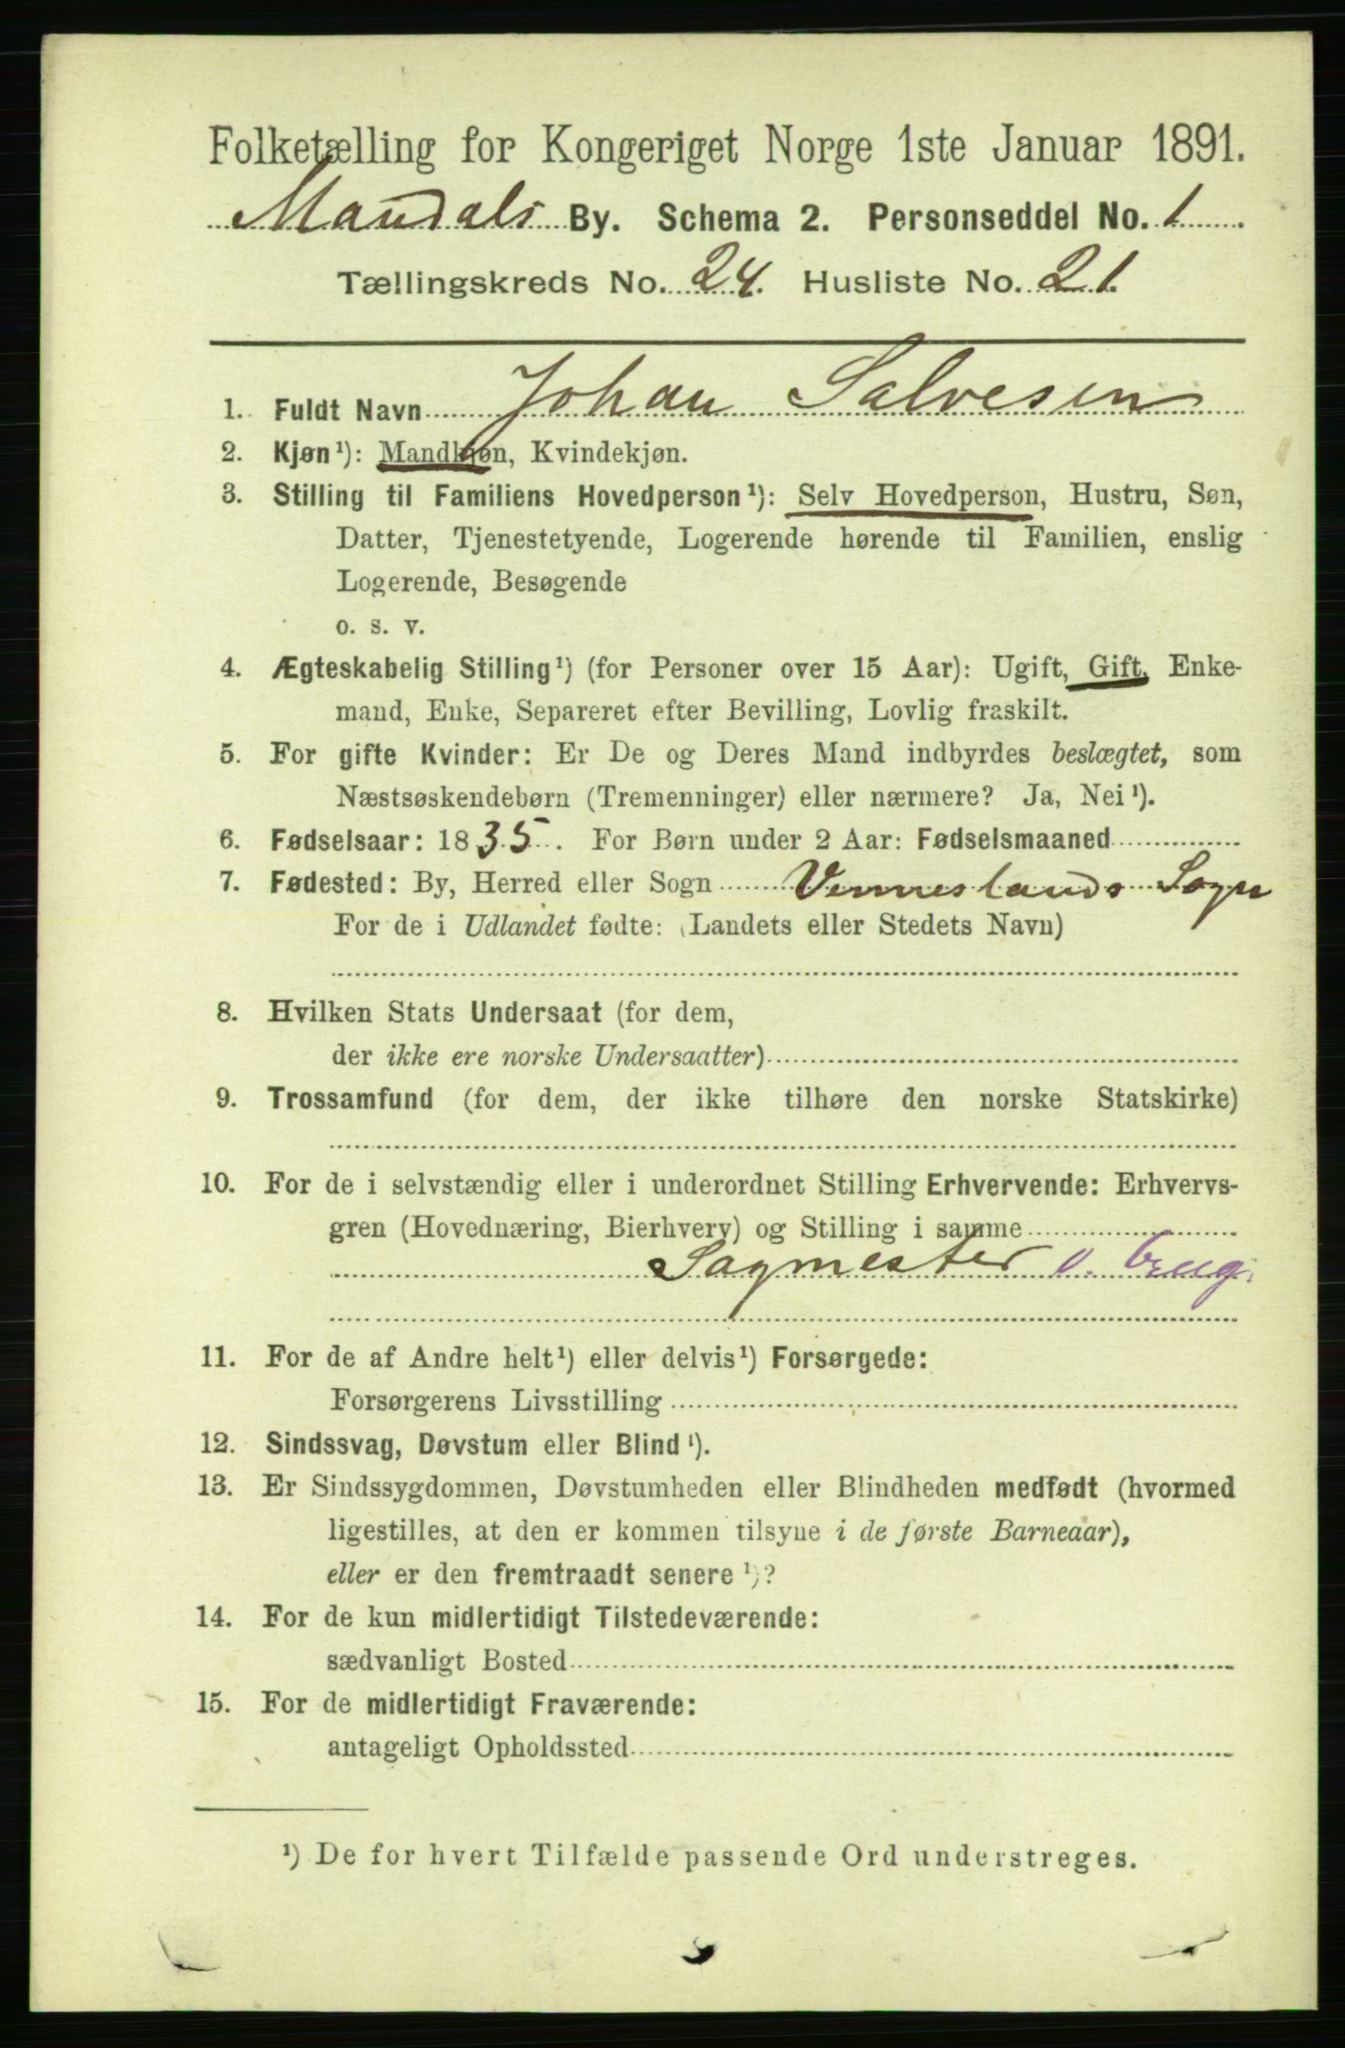 Folketælling for Kongeriget Norge 1ste Januar 1891.
Mandals By. Schema 2. Personseddel No. 1
Tællingskreds No. 24. Husliste No. 21.
1. Fuldt Navn Johan Salvesen
2. Kjøn¹): Mandkjøn, Kvindekjøn.
3. Stilling til Familiens Hovedperson¹): Selv Hovedperson, Hustru, Søn,
Datter, Tjenestetyende, Logerende hørende til Familien, enslig
Logerende, Besøgende
o. s. v.
4. Ægteskabelig Stilling¹) (for Personer over 15 Aar): Ugift, Gift, Enke-
mand, Enke, Separeret efter Bevilling, Lovlig fraskilt.
5. For gifte Kvinder: Er De og Deres Mand indbyrdes beslægtet, som
Næstsøskendebørn (Tremenninger) eller nærmere? Ja, Nei¹).
6. Fødselsaar: 1835. For Børn under 2 Aar: Fødselsmaaned
7. Fødested: By, Herred eller Sogn Venneslands Sogn
For de i Udlandet fødte: (Landets eller Stedets Navn)
8. Hvilken Stats Undersaat (for dem,
der ikke ere norske Undersaatter)
9. Trossamfund (for dem, der ikke tilhøre den norske Statskirke)
10. For de i selvstændig eller i underordnet Stilling Erhvervende: Erhvervs-
gren (Hovednæring, Bierhverv) og Stilling i samme
Sagmester v. brug.
11. For de af Andre helt¹) eller delvis¹) Forsørgede:
Forsørgerens Livsstilling
12. Sindssvag, Døvstum eller Blind¹).
13. Er Sindssygdommen, Døvstumheden eller Blindheden medfødt (hvormed
ligestilles, at den er kommen tilsyne i de første Barneaar),
eller er den fremtraadt senere¹)?
14. For de kun midlertidigt Tilstedeværende:
sædvanligt Bosted
15. For de midlertidigt Fraværende:
antageligt Opholdssted
¹) De for hvert Tilfælde passende Ord understreges.